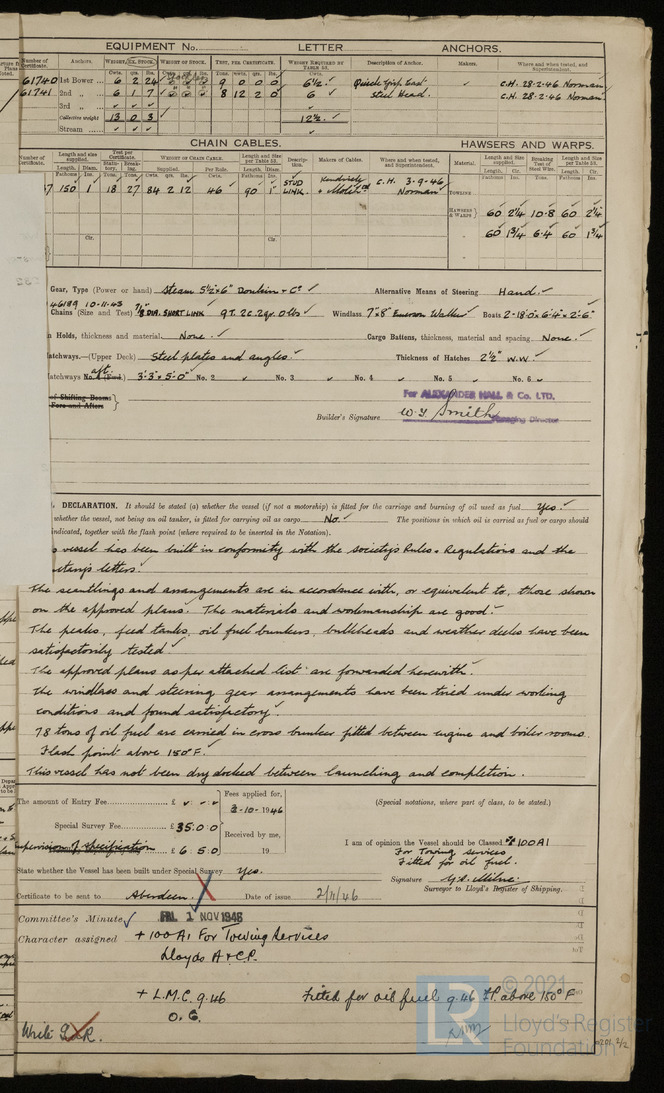 EQUIPMENT No. LETTER ANCHORS.
Number of Certificate. Anchors. WEIGHT, EX. STOCK. WEIGHT OF STOCK. TEST, PER CERTIFICATE. WEIGHT REQUIRED BY TABLE 53. Description of Anchor. Makers. Where and when tested, and Superintendent.
61740 1st Bower 6 2 24 9 0 0 0 6½ Quick Grip Cast C.H. 28-2-46 Norman
61741 2nd „ 6 1 7 8 12 2 0 6 Steel Head. C.H. 28-2-46 Norman
3rd „
Collective weight 13 0 3 12½
Stream
CHAIN CABLES. HAWSERS AND WARPS.
Number of Certificate. Length and size supplied. Test per Certificate. WEIGHT OF CHAIN CABLE. Length and size per Table 53. Description. Makers of Cables. Where and when tested, and Superintendent. Material. Length and Size supplied. Breaking Test of Steel Wire. Length and Size per Table 53.
150 1 18 27 84 2 12 46 90 1 STUD LINK. C.H. 3-9-46 Norman
TOWLINE
HAWSERS & WARPS 60 2¼ 10·8 60 2¼
„ 60 1¾ 6·4 60 1¾
Gear, Type (Power or hand) Steam 5½"x6" Donkin & Co Alternative Means of Steering Hand.
46189 10-11-43
Chains (Size and Test) 7/8 DIA. SHORT LINK 9T. 2c. 2qr. 0lbs Windlass 7"x8" Emerson Walker Boats 2-18'0"x6'4"x2'-6"
Holds, thickness and material. None. Cargo Battens, thickness, material and spacing. None.
atchways.—(Upper Deck) Steel plates and angles. Thickness of Hatches 2½" W.W.
atchways No. aft 3'-3"x5'-0" No. 2 No. 3 No. 4 No. 5 No. 6
of Shifting Beams
Fore and Afters
For ALEXANDER HALL & Co. LTD.
Builder's Signature W. Y. Smith Managing Director
DECLARATION. It should be stated (a) whether the vessel (if not a motorship) is fitted for the carriage and burning of oil used as fuel Yes.
whether the vessel, not being an oil tanker, is fitted for carrying oil as cargo No. The positions in which oil is carried as fuel or cargo should
indicated, together with the flash point (where required to be inserted in the Notation).
vessel has been built in conformity with the society's Rules & Regulations and the
letters.
The scantlings and arrangements are in accordance with, or equivalent to, those shown
on the approved plans. The materials and workmanship are good.
The peaks, feed tanks, oil fuel bunkers, bulkheads and weather decks have been
satisfactorily tested.
The approved plans as per attached list are forwarded herewith.
The windlass and steering gear arrangements have been tried under working
conditions and found satisfactory.
78 tons of oil fuel are carried in cross bunker fitted between engine and boiler rooms.
Flash point above 150°F.
This vessel has not been dry docked between launching and completion.
The amount of Entry Fee £ Fees applied for, -10-1946 (Special notations, where part of class, to be stated.)
Special Survey Fee £ 35:0:0 Received by me,
supervision of specification £ 6:5:0 19
I am of opinion the Vessel should be Classed +100A1
For Towing Services
Fitted for oil fuel.
State whether the Vessel has been built under Special Survey Yes.
Signature
Surveyor to Lloyd's Register of Shipping.
Certificate to be sent to Aberdeen. Date of issue 2/11/46
Committee's Minute FRI. 1 NOV 1946
Character assigned +100A1 For Towing Services
Lloyds A&CP.
+ L.M.C. 9.46 Fitted for oil fuel 9.46 F.P. above 150°F
O.G.
Write
© 2021
LR
Lloyd's Register
Foundation